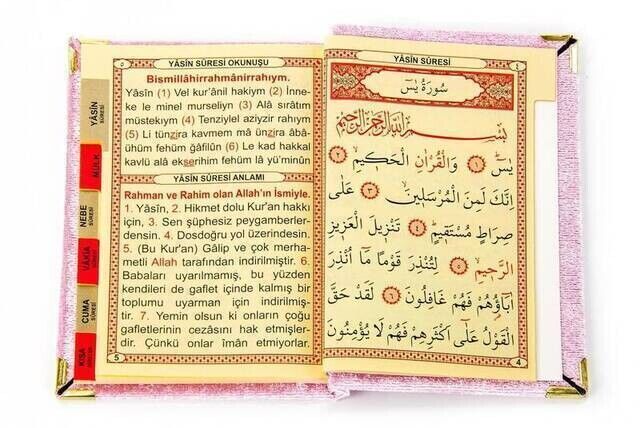 YÂSİN SÛRESİ
٤
سُورَةُ يٰسٓ
بِسْمِ اللّٰهِ الرَّحْمٰنِ الرَّحِيمِ
يٰسٓ ١ وَالْقُرْاٰنِ الْحَكِيمِ ٢
اِنَّكَ لَمِنَ الْمُرْسَلِينَ ٣ عَلٰى
صِرَاطٍ مُسْتَقِيمٍ ٤ تَنْزِيلَ الْعَزِيزِ
الرَّحِيمِ ٥ لِتُنْذِرَ قَوْمًا مَٓا اُنْذِرَ
اٰبَٓاؤُ۬هُمْ فَهُمْ غَافِلُونَ ٦ لَقَدْ حَقَّ
الْقَوْلُ عَلٰٓى اَكْثَرِهِمْ فَهُمْ لَا يُؤْمِنُونَ
4
٥
YÂSİN SÛRESİ OKUNUŞU
Bismillâhirrahmânirrahıym.
Yâsîn (1) Vel kur'ânil hakiym (2) İnne-
ke le minel murseliyn (3) Alâ sırâtım
müstekıym (4) Tenziylel aziyzir rahıym
(5) Li tünzira kavmem mâ ünzira âbâ-
ühüm fehüm ğâfilûn (6) Le kad hakkal
kavlü alâ ekserihim fehüm lâ yü'minûn
YÂSİN SÛRESİ ANLAMI
Rahman ve Rahim olan Allah'ın İsmiyle.
1. Yâsîn, 2. Hikmet dolu Kur'an hakkı
için, 3. Sen şüphesiz peygamberler-
densin. 4. Dosdoğru yol üzerindesin.
5. (Bu Kur'an) Gâlip ve çok merha-
metli Allah tarafından indirilmiştir. 6.
Babaları uyarılmamış, bu yüzden
kendileri de gaflet içinde kalmış bir
toplumu uyarman için indirilmiş-
tir. 7. Yemin olsun ki onların çoğu
gafletlerinin cezâsını hak etmişler-
dir. Çünkü onlar îmân etmiyorlar.
5
YÂSİN
SÛRESİ
MÜLK
NEBE
SÛRESİ
VÂKIA
SÛRESİ
CUMA
SÛRESİ
KISA